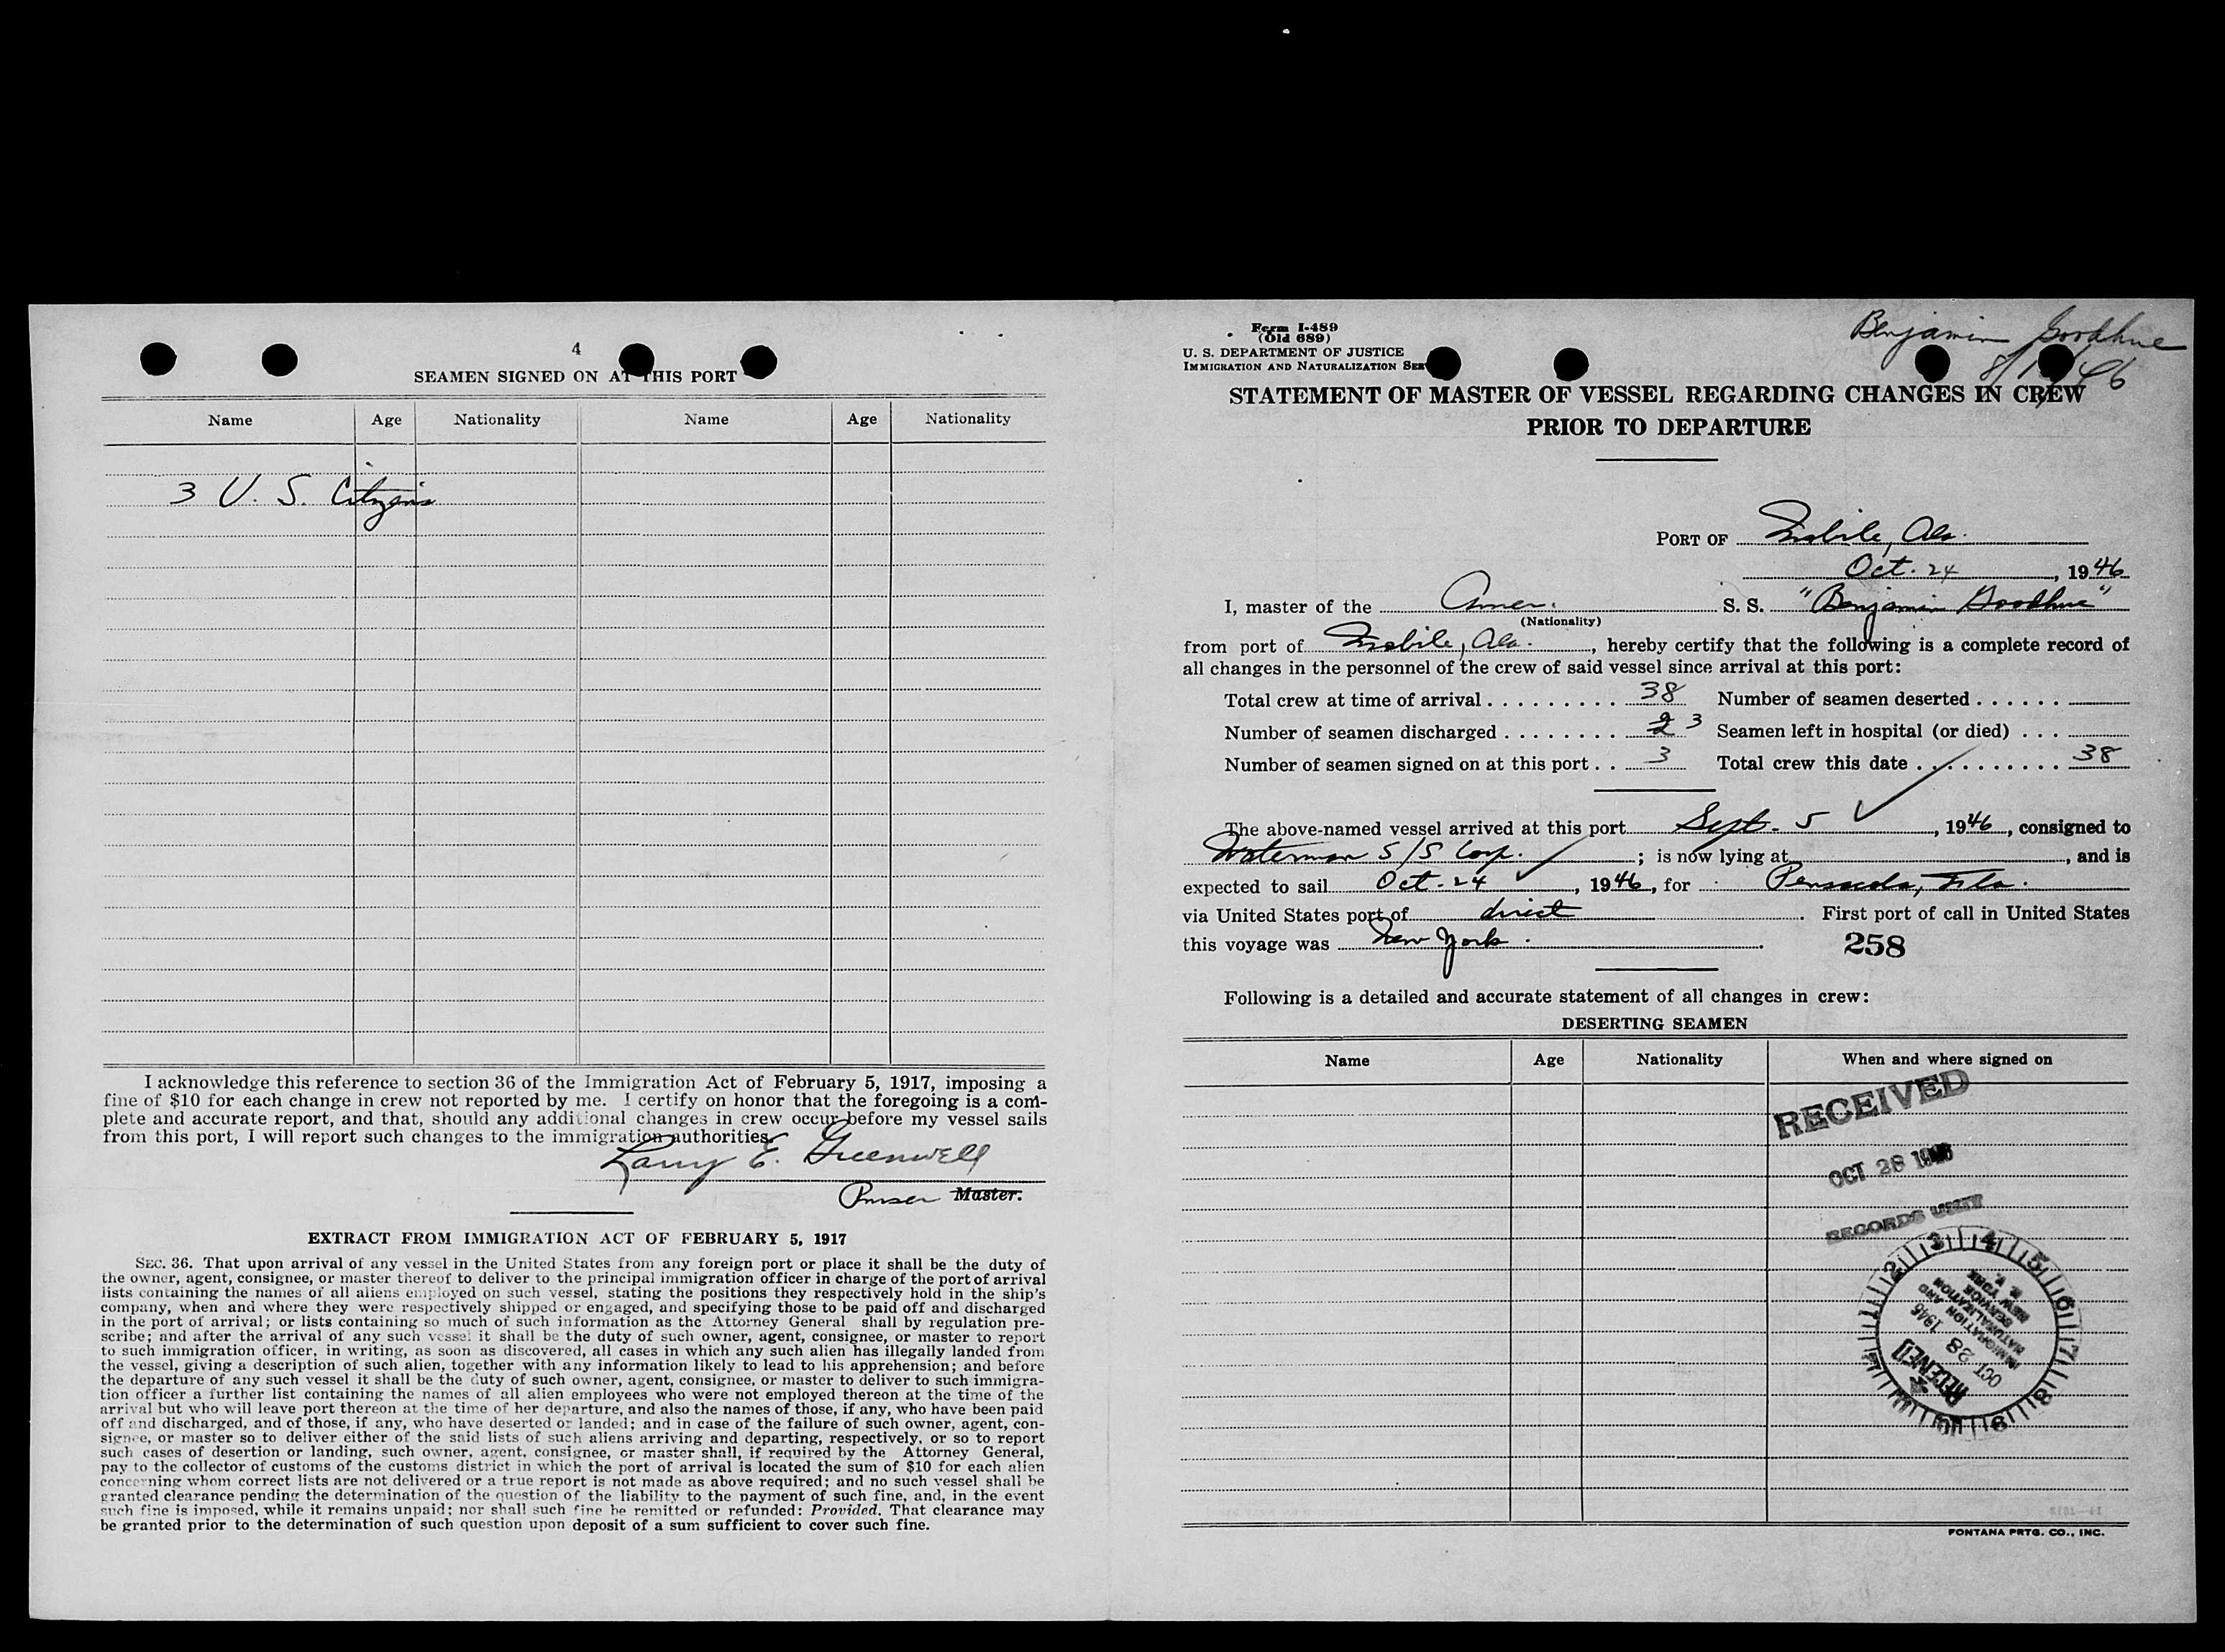 4
SEAMEN SIGNED ON AT THIS PORT
Name Age Nationality Name Age Nationality
3 U. S. Citizens
I acknowledge this reference to section 36 of the Immigration Act of February 5, 1917, imposing a
fine of $10 for each change in crew not reported by me. I certify on honor that the foregoing is a com-
plete and accurate report, and that, should any additional changes in crew occur before my vessel sails
from this port, I will report such changes to the immigration authorities.
Larry E. Greenwell
Purser Master.
EXTRACT FROM IMMIGRATION ACT OF FEBRUARY 5, 1917
SEC. 36. That upon arrival of any vessel in the United States from any foreign port or place it shall be the duty of
the owner, agent, consignee, or master thereof to deliver to the principal immigration officer in charge of the port of arrival
lists containing the names of all aliens employed on such vessel, stating the positions they respectively hold in the ship's
company, when and where they were respectively shipped or engaged, and specifying those to be paid off and discharged
in the port of arrival; or lists containing so much of such information as the Attorney General shall by regulation pre-
scribe; and after the arrival of any such vessel it shall be the duty of such owner, agent, consignee, or master to report
to such immigration officer, in writing, as soon as discovered, all cases in which any such alien has illegally landed from
the vessel, giving a description of such alien, together with any information likely to lead to his apprehension; and before
the departure of any such vessel it shall be the duty of such owner, agent, consignee, or master to deliver to such immigra-
tion officer a further list containing the names of all alien employees who were not employed thereon at the time of the
arrival but who will leave port thereon at the time of her departure, and also the names of those, if any, who have been paid
off and discharged, and of those, if any, who have deserted or landed; and in case of the failure of such owner, agent, con-
signee, or master so to deliver either of the said lists of such aliens arriving and departing, respectively, or so to report
such cases of desertion or landing, such owner, agent, consignee, or master shall, if required by the Attorney General,
pay to the collector of customs of the customs district in which the port of arrival is located the sum of $10 for each alien
concerning whom correct lists are not delivered or a true report is not made as above required; and no such vessel shall be
granted clearance pending the determination of the question of the liability to the payment of such fine, and, in the event
such fine is imposed, while it remains unpaid; nor shall such fine be remitted or refunded: Provided, That clearance may
be granted prior to the determination of such question upon deposit of a sum sufficient to cover such fine.
Form I-489
(Old 689)
U. S. DEPARTMENT OF JUSTICE
IMMIGRATION AND NATURALIZATION SER
Benjamin Goodhue
STATEMENT OF MASTER OF VESSEL REGARDING CHANGES IN CREW
PRIOR TO DEPARTURE
PORT OF Mobile, Ala.
Oct. 24, 1946
I, master of the Amer. S. S. "Benjamin Goodhue"
(Nationality)
from port of Mobile, Ala., hereby certify that the following is a complete record of
all changes in the personnel of the crew of said vessel since arrival at this port:
Total crew at time of arrival 38 Number of seamen deserted
Number of seamen discharged 2 3 Seamen left in hospital (or died)
Number of seamen signed on at this port 3 Total crew this date 38
The above-named vessel arrived at this port Sept. 5, 1946, consigned to
Waterman S/S Corp.; is now lying at , and is
expected to sail Oct. 24, 1946, for Pensacola, Fla.
via United States port of direct. First port of call in United States
this voyage was New York.
258
Following is a detailed and accurate statement of all changes in crew:
DESERTING SEAMEN
Name Age Nationality When and where signed on
RECEIVED
OCT 28 1946
RECORDS UNIT
1 2 3 4 5 6 7 8 9 10 11
IMMIGRATION AND
NATURALIZATION
SERVICE
NEW YORK
N. Y.
RECEIVED
OCT 28 1946
FONTANA PRTG. CO., INC.